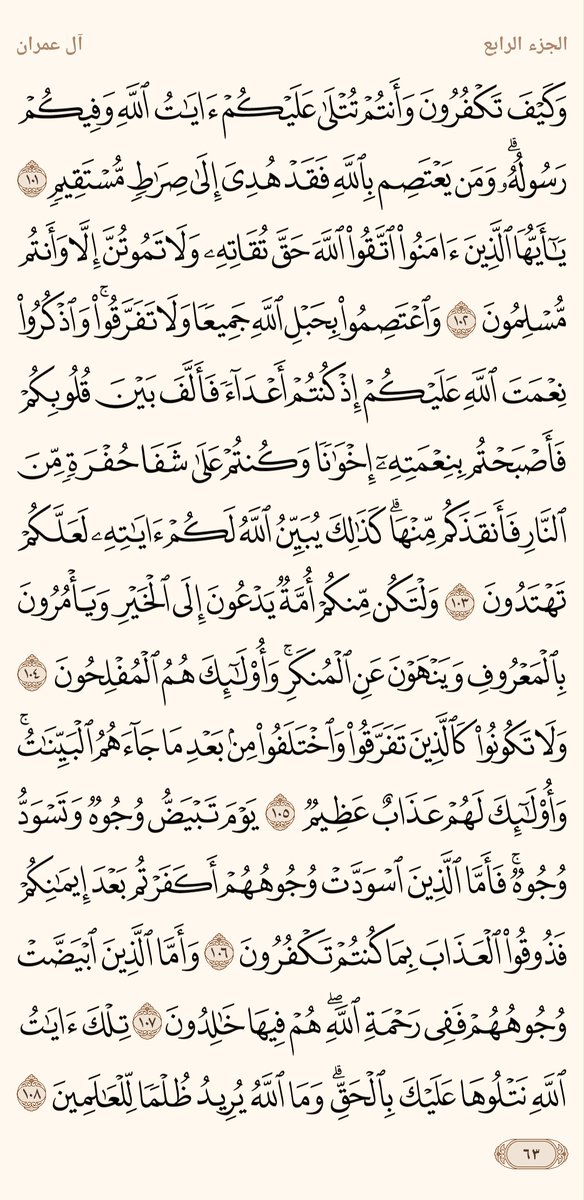 الجزء الرابع
آل عمران
وَكَيۡفَ تَكۡفُرُونَ وَأَنتُمۡ تُتۡلَىٰ عَلَيۡكُمۡ ءَايَٰتُ ٱللَّهِ وَفِيكُمۡ
رَسُولُهُۥۗ وَمَن يَعۡتَصِم بِٱللَّهِ فَقَدۡ هُدِيَ إِلَىٰ صِرَٰطٖ مُّسۡتَقِيمٖ ١٠١
يَٰٓأَيُّهَا ٱلَّذِينَ ءَامَنُواْ ٱتَّقُواْ ٱللَّهَ حَقَّ تُقَاتِهِۦ وَلَا تَمُوتُنَّ إِلَّا وَأَنتُم
مُّسۡلِمُونَ ١٠٢ وَٱعۡتَصِمُواْ بِحَبۡلِ ٱللَّهِ جَمِيعٗا وَلَا تَفَرَّقُواْۚ وَٱذۡكُرُواْ
نِعۡمَتَ ٱللَّهِ عَلَيۡكُمۡ إِذۡ كُنتُمۡ أَعۡدَآءٗ فَأَلَّفَ بَيۡنَ قُلُوبِكُمۡ
فَأَصۡبَحۡتُم بِنِعۡمَتِهِۦٓ إِخۡوَٰنٗا وَكُنتُمۡ عَلَىٰ شَفَا حُفۡرَةٖ مِّنَ
ٱلنَّارِ فَأَنقَذَكُم مِّنۡهَاۗ كَذَٰلِكَ يُبَيِّنُ ٱللَّهُ لَكُمۡ ءَايَٰتِهِۦ لَعَلَّكُمۡ
تَهۡتَدُونَ ١٠٣ وَلۡتَكُن مِّنكُمۡ أُمَّةٞ يَدۡعُونَ إِلَى ٱلۡخَيۡرِ وَيَأۡمُرُونَ
بِٱلۡمَعۡرُوفِ وَيَنۡهَوۡنَ عَنِ ٱلۡمُنكَرِۚ وَأُوْلَٰٓئِكَ هُمُ ٱلۡمُفۡلِحُونَ ١٠٤
وَلَا تَكُونُواْ كَٱلَّذِينَ تَفَرَّقُواْ وَٱخۡتَلَفُواْ مِنۢ بَعۡدِ مَا جَآءَهُمُ ٱلۡبَيِّنَٰتُۚ
وَأُوْلَٰٓئِكَ لَهُمۡ عَذَابٌ عَظِيمٞ ١٠٥ يَوۡمَ تَبۡيَضُّ وُجُوهٞ وَتَسۡوَدُّ
وُجُوهٞۚ فَأَمَّا ٱلَّذِينَ ٱسۡوَدَّتۡ وُجُوهُهُمۡ أَكَفَرۡتُم بَعۡدَ إِيمَٰنِكُمۡ
فَذُوقُواْ ٱلۡعَذَابَ بِمَا كُنتُمۡ تَكۡفُرُونَ ١٠٦ وَأَمَّا ٱلَّذِينَ ٱبۡيَضَّتۡ
وُجُوهُهُمۡ فَفِي رَحۡمَةِ ٱللَّهِۖ هُمۡ فِيهَا خَٰلِدُونَ ١٠٧ تِلۡكَ ءَايَٰتُ
ٱللَّهِ نَتۡلُوهَا عَلَيۡكَ بِٱلۡحَقِّۗ وَمَا ٱللَّهُ يُرِيدُ ظُلۡمٗا لِّلۡعَٰلَمِينَ ١٠٨
٦٣